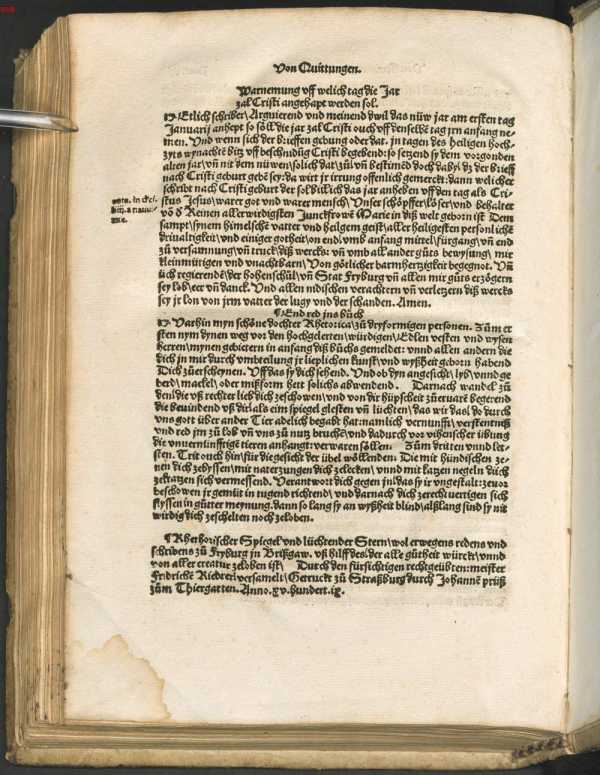 Von Quittungen.
Warnemung vff welich tag die Jar
zal Cristi angehapt werden sol.
Etlich schriber/ Arguierend vnd meinend dwil das nüw jar am ersten tag
Januarij anhept so söll die jar zal Cristi ouch vff denselbē tag jrn anfang ne-
men. Vnd wenn sich der brieffen gebung oder dat. jn tagen des heiligen hoch-
zyts wynachtē bitz vff beschnidūg Cristi begebend: so setzend sy dem vorgonden
alten jar/ vñ nit dem nüwen/ solich dat/ zůl vñ bestimēd doch dabÿ/ dz der brieff
nach Cristi geburt gebē sey: da wirt jr irrung offenlich gemerckt: dann welicher
schribt nach Cristi geburt der sol billich das jar anheben vff den tag als Cri-
stus Jesus/ warer got vnd warer mensch/ Vnser schöpffer/ löser/ vnd behalter
võ d Reinen allerwirdigsten Junckfrowē Marie in diß welt geborn ist Dem
sampt/ synem himelschē vatter vnd heilgem geist/ aller heiligesten personlichē
driualtigkeit/ vnd einiger gotheit/ on end/ vmb anfang mittel/ fürgang/ vñ end
zů versamnung/ vñ truck/ diß wercks: vñ vmb all ander gůts bewysung/ mir
kleinmütigen vnd vnachtbarn/ Von götlicher barmhertzigkeit begegnot. Vñ
üch regierendē/ der hohenschůl/ vñ Stat Fryburg vñ allen mir gůts erzögern
sey lob/ eer vñ danck. Vnd allen nidischen verachtern vñ verletzern diß wercks
sey jr lon von jrm vatter der lugy vnd der schanden. Amen.
¶ End red jns bůch
Vathin myn schöne dochter Rhetorica/ zů dryformigen personen. Zům er
sten myn dynen weg vor den hochgelerten/ würdigen/ Edlen vesten vnd wysen
herren/ mynen gebietern in anfang diß bůchs gemeldet: vnnd allen andern die
dich jn mir durch vmbteilung jr lieplichen kunst/ vnd wyßheit geborn habend
Dich zůerscheynen. Vff das sy dich sehend. Vnd ob dyn angesicht/ lyb/ vnnd ge
berd/ mackel/ oder mißform hett solichs abwendend. Darnach wandel zů
den/ die vß rechter lieb dich zeschowen/ vnd von dir hüpscheit zůeruarē begerend
die bewindend vß dir/ als eim spiegel glesten vñ lüchten/ das wir das/ do durch
vns gott über ander Tier adelich begabt hat: namlich vernunfft/ verstentnuß
vnd red jm zů lob vñ vns zů nutz bruchē/ vnd dadurch vor vihenscher übung
die vnuernünfftige tieren anhangt: verwaren söllen. Zům dritten vnnd let-
sten. Trit ouch hin/ für die gesicht der übel wöllenden. Die mit hündischen ze-
nen dich zebyssen/ mit naterzungen dich zelecken/ vnnd mit katzen negeln dich
zekratzen sich vermessend. Verantwort dich gegen jn/ das sy ir vngestalt: zeuor
beschowen jr gemüt in tugend richtend/ vnd darnach dich zerechtuertigen sich
flyssen in gůtter meynung. dann so lang sy an wyßheit blind/ alßlang sind sy nit
wirdig dich zeschelten noch zeloben.
¶ Rhethorischer Spiegel vnd lüchtender Stern/ wol erwegens redens vnd
schribens zů Fryburg jn Brißgaw. vß hilff des/ der alle gůtheit würckt/ vnnd
von aller creatur zeloben ist/ Durch den fürsichtigen rechtgeübten: meister
Fridrichē Riedrer/ versamelt/ Getruckt zů Straßburg durch Johannē prüß
zům Thiergarten. Anno. xv. hundert. ix.